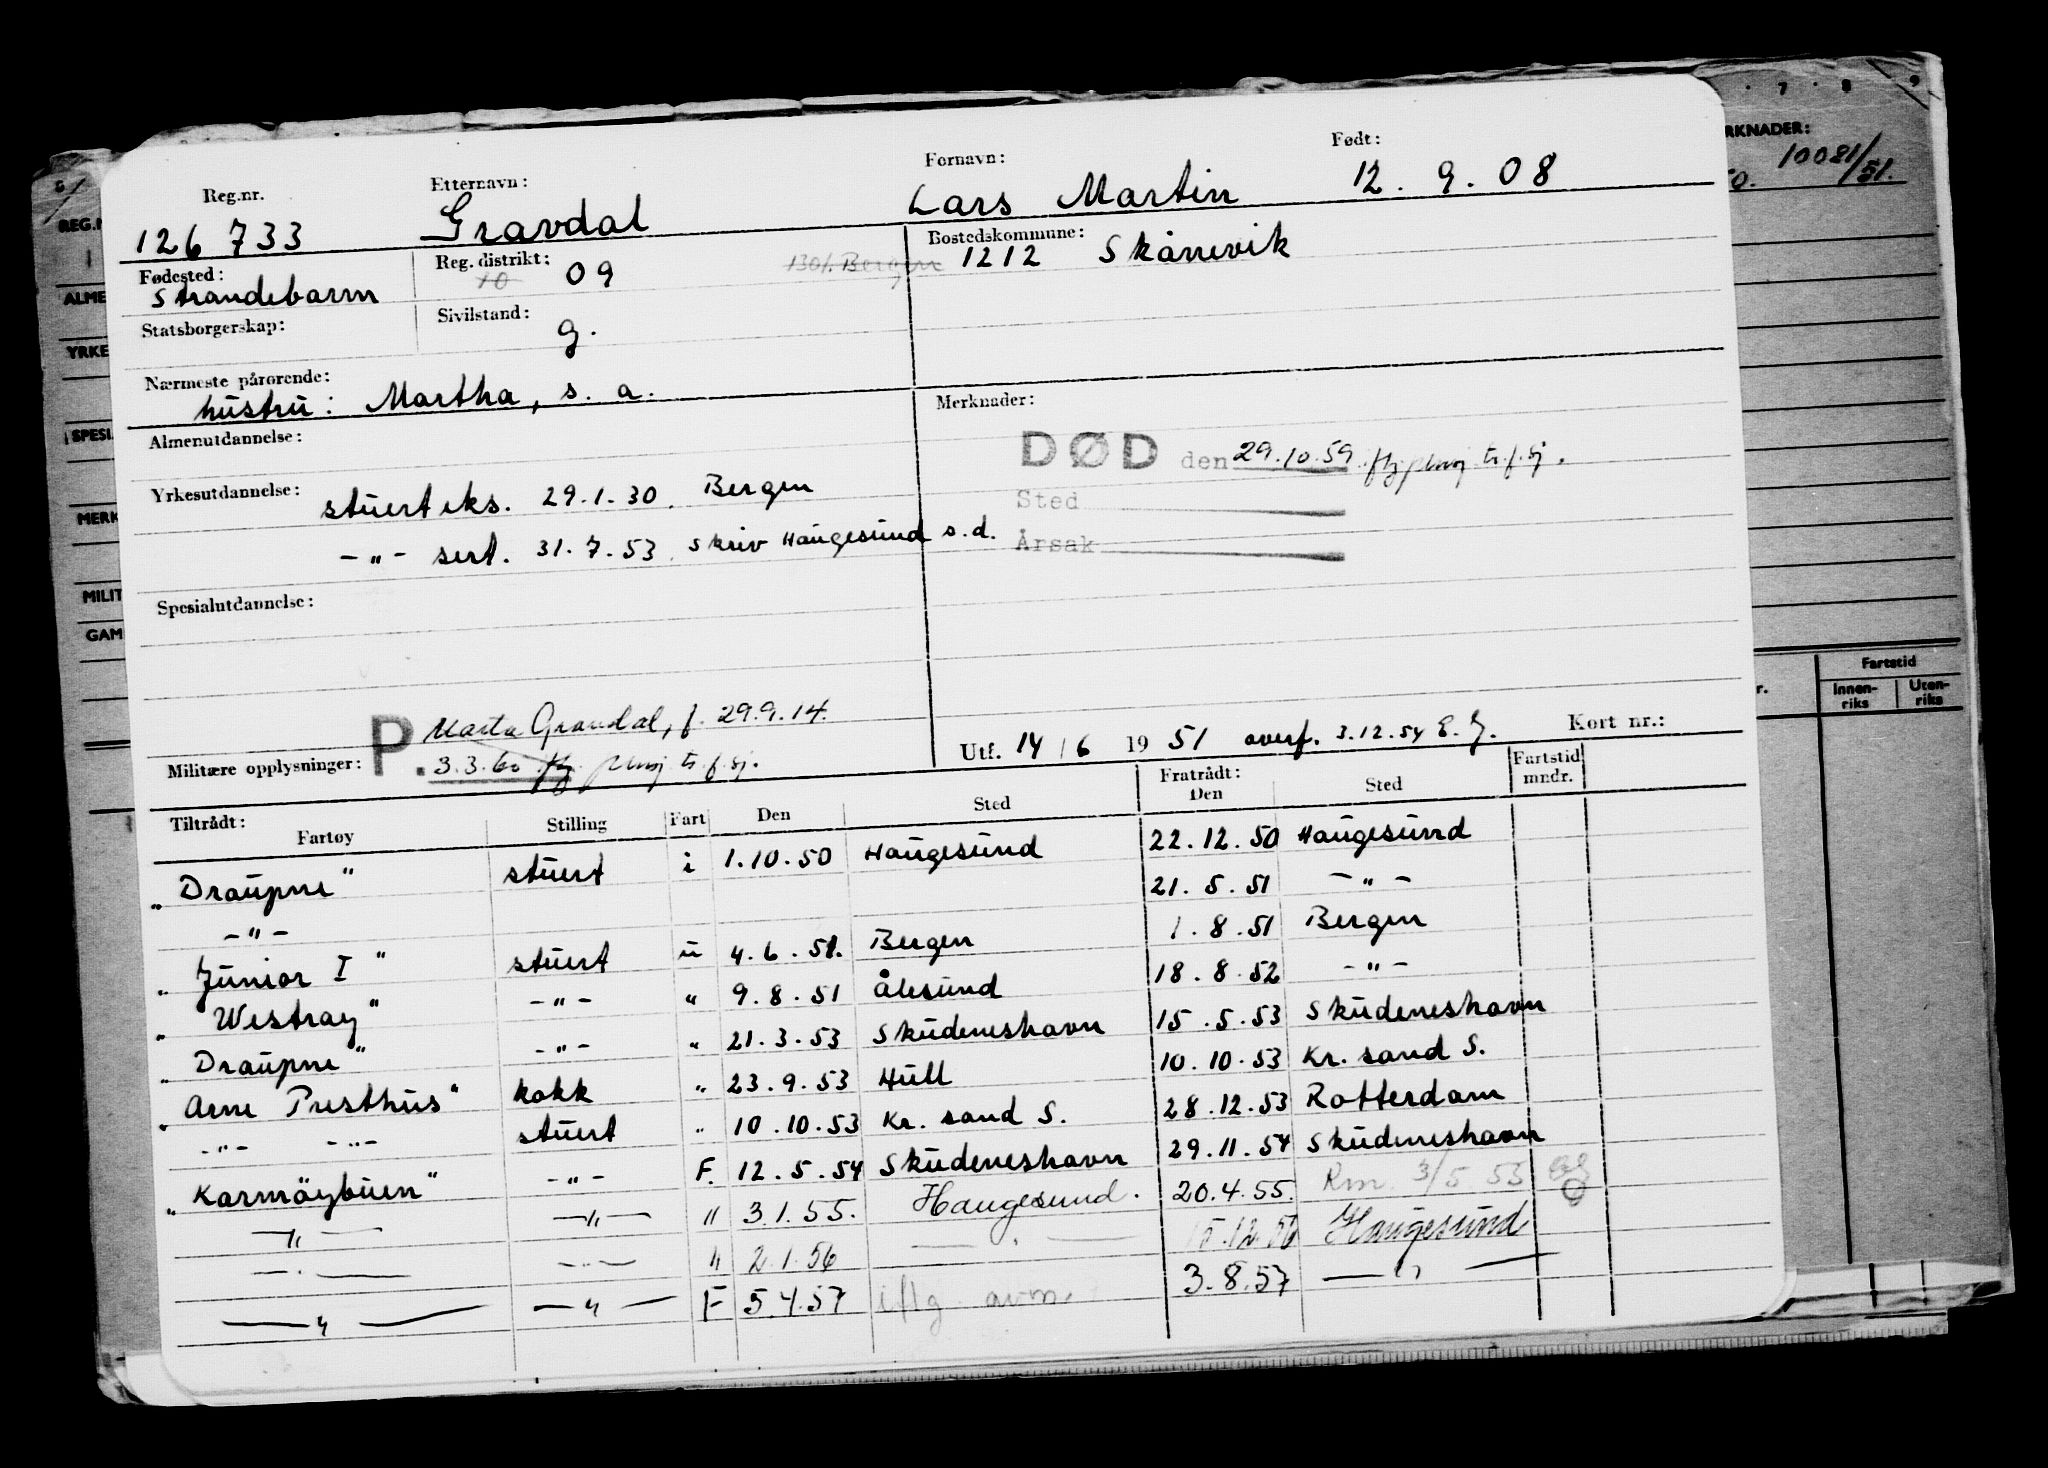 Reg.nr. Etternavn: Fornavn: Født:
126 733 Gravdal Lars Martin 12. 9. 08
Fødested: Reg. distrikt: Bostedskommune:
Strandebarm 10 09 1301. Bergen 1212 Skånevik
Statsborgerskap: Sivilstand:
g.
Nærmeste pårørende:
hustru: Martha, s. a.
Almenutdannelse: Merknader:
DØD den 29.10.59
Yrkesutdannelse: stuert eks. 29.1.30. Bergen
Sted
-"- sert. 31.7.53. Skriv Haugesund s.d.
Årsak
Spesialutdannelse:
P. Marta Gravdal, f. 29.9.14.
Militære opplysninger: 3.3.60
Utf. 14/6 1951 overf. 3.12.54 E.G. Kort nr.:
Tiltrådt: Fratrådt: Fartstid
Fartøy Stilling Fart Den Sted Den Sted mndr.
"Draupne" stuert i 1.10.50 Haugesund 22.12.50 Haugesund
-"- 21.5.51 -"-
"Junior I" stuert u 4.6.51. Bergen 1.8.51 Bergen
"Westray" -"- " 9.8.51 Ålesund 18.8.52 -"-
"Draupne" -"- " 21.3.53 Skudeneshavn 15.5.53 Skudeneshavn
"Arne Presthus" kokk " 23.9.53 Hull 10.10.53 Kr. sand S.
-"- -"- stuert " 10.10.53 Kr. sand S. 28.12.53 Rotterdam
"Karmöybuen" -"- F. 12.5.54 Skudeneshavn 29.11.54 Skudeneshavn
-"- -"- " 3.1.55. Haugesund. 20.4.55. Rm. 3/5.55
-"- -"- " 2.1.56 -"- 15.12.56 Haugesund
-"- -"- F 5.4.57 iflg. avm. 3.8.57 -"-
7 8 9
RKNADER:
10081/51.
REG.N
ALME
YRKE
SPESI
MERK
MILIT
GAM
Fartstid
Innen-riks Uten-riks